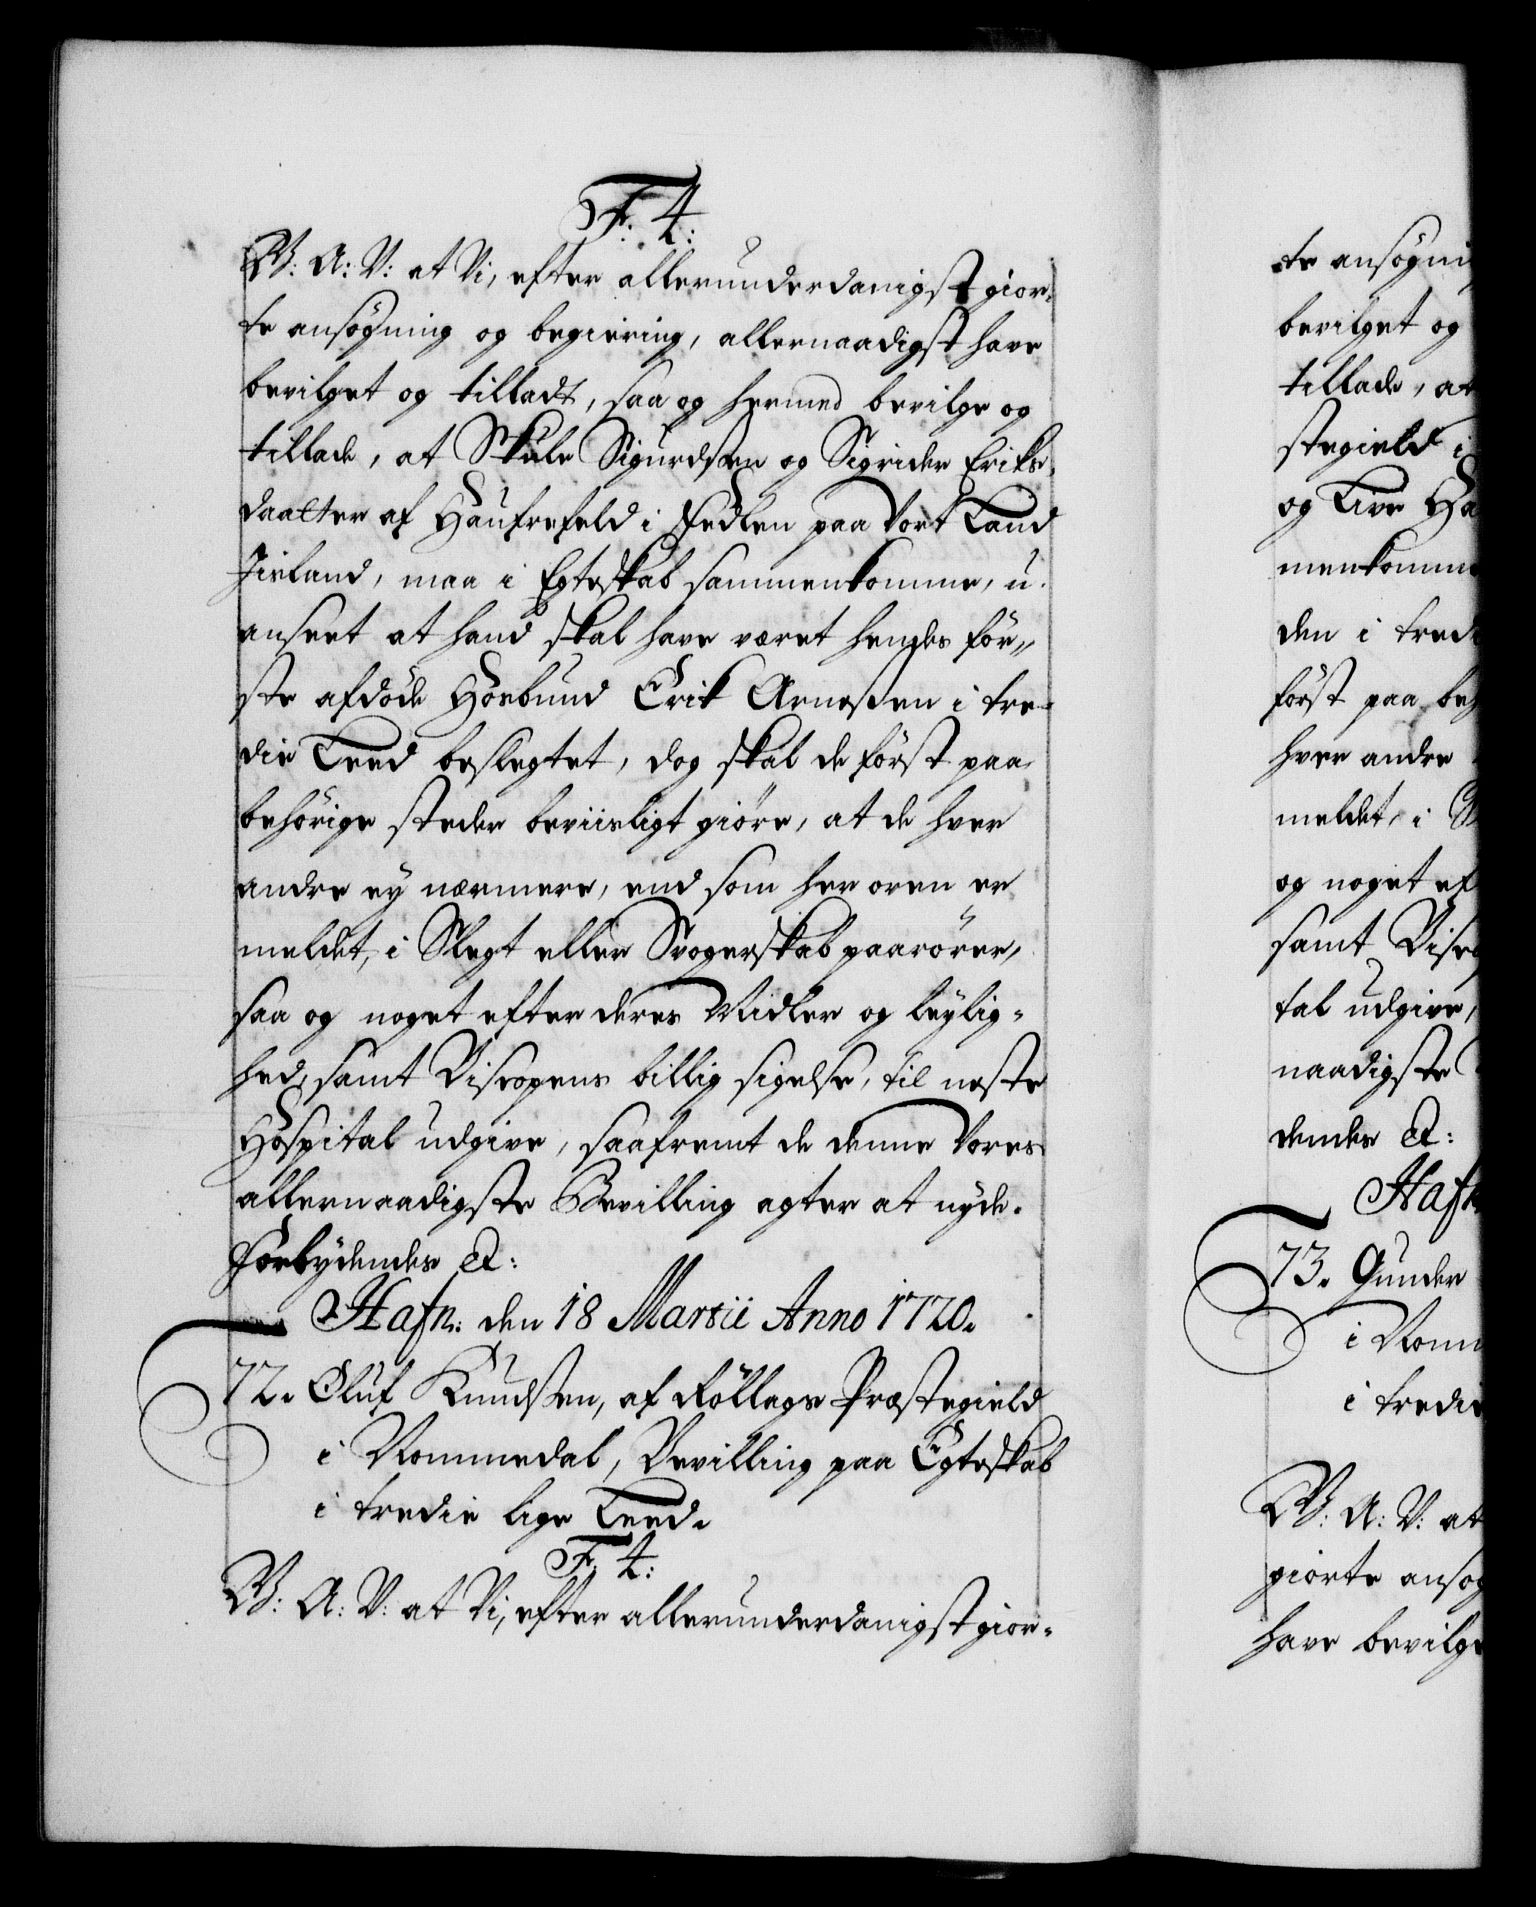 F. 4:
G: A: V: at Vi, efter allerunderdanigst gior-
te ansøgning og begiering, allernaadigst have
bevilget og tilladt, saa og hermed bevilge og
tillade, at Skule Sigurdsen og Sigrider Eriks-
daatter af i paa Vort Land
Jisland, maa i Egteskab sammenkomme, u-
anseet at hand skal have været hendes för-
ste afdöde Hosbund Erik Arnesen i tre-
die Leed beslegtet, dog skal de först paa
behörige steder beviisligt giöre, at de hver
andre ey nærmere, end som her oven er
meldet, i Slegt eller Svogerskab paarörer,
saa og noget efter deres Midler og leylig-
hed, samt Biscopens billig sigelse, til neste
Hospital udgive, saafremt de denne Vores
allernaadigste Bevilling agter at nyde.
Forbydendes &:
Hafn: den 18 Martii Anno 1720.
72. Oluf Knudsen, af Röllags Præstegield
i Nommedal, Bevilling paa Egteskab
i tredie lige Leed.
F. 4:
G: A: V: at Vi, efter allerunderdanigst gior-
te ansögni
bevilget og
tillade, at
stegield i
og Live Ha
menkomme
den i tredi
först paa beh
hver andre
meldet, i S
og noget ef
samt Bisco
tal udgive,
naadigste
dendes &:
Hafn
73. Gunder
i Nomm
i tredie
G: A: V: at
giorte ansög
have bevilge